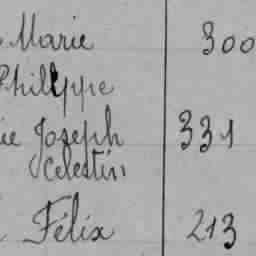 Marie 300
Philippe
ie Joseph 331
Celestin
Félix 213